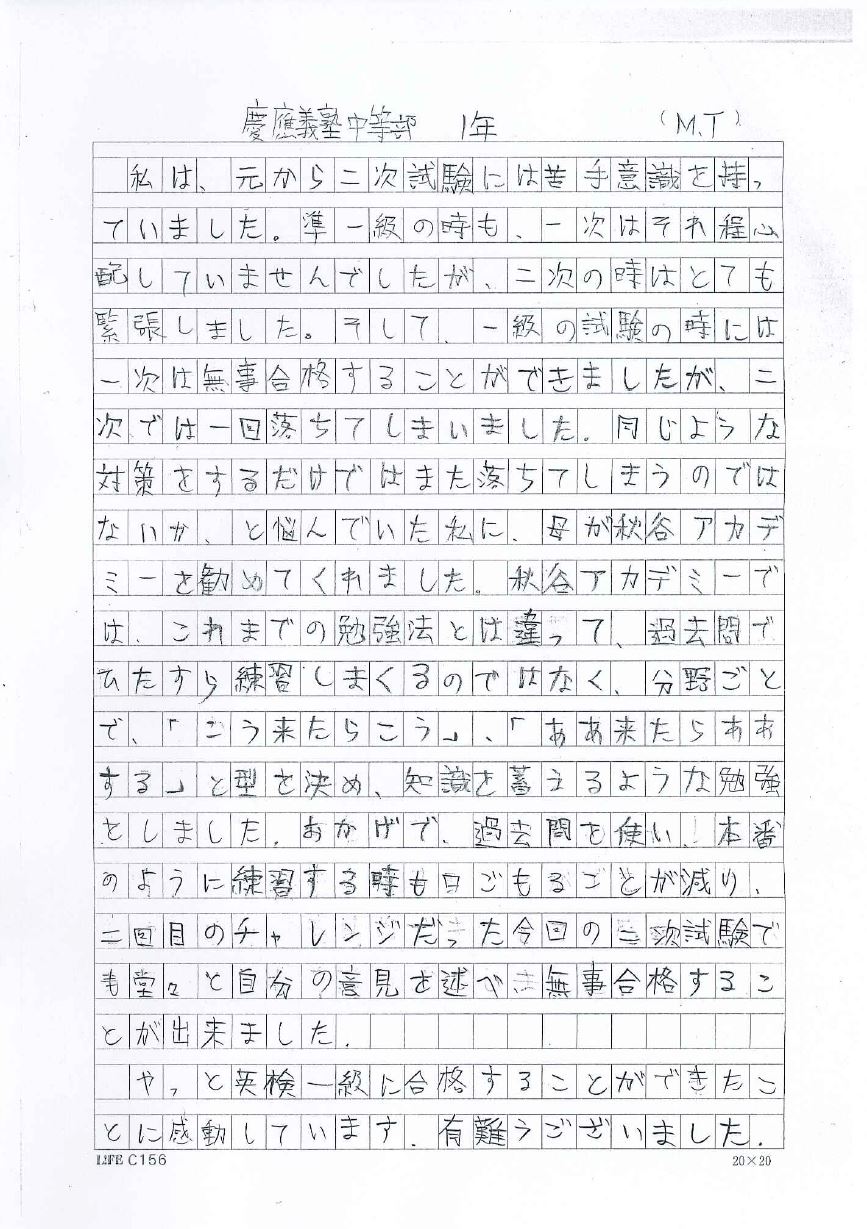 慶應義塾中等部 1年 (M.T)
私は、元から二次試験には苦手意識を持っ
ていました。準一級の時も、一次はそれ程心
配していませんでしたが、二次の時はとても
緊張しました。そして、一級の試験の時には
一次は無事合格することができましたが、二
次では一回落ちてしまいました。同じような
対策をするだけではまた落ちてしまうのでは
ないか、と悩んでいた私に、母が秋谷アカデ
ミーを勧めてくれました。秋谷アカデミーで
は、これまでの勉強法とは違って、過去問で
ひたすら練習しまくるのではなく、分野ごと
で、「こう来たらこう」、「ああ来たらああ
する」と型を決め、知識を蓄えるような勉強
をしました。おかげで、過去問を使い、本番
のように練習する時も口ごもることが減り、
二回目のチャレンジだった今回の二次試験で
も堂々と自分の意見を述べ無事合格するこ
とが出来ました。
やっと英検一級に合格することができたこ
とに感動しています。有難うございました。
LIFE C156 20×20